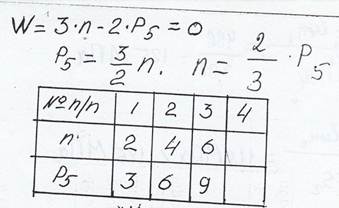 W = 3·n - 2·P₅ = 0
P₅ = 3/2 n. n = 2/3 · P₅
№ п/п 1 2 3 4
n 2 4 6
P₅ 3 6 9